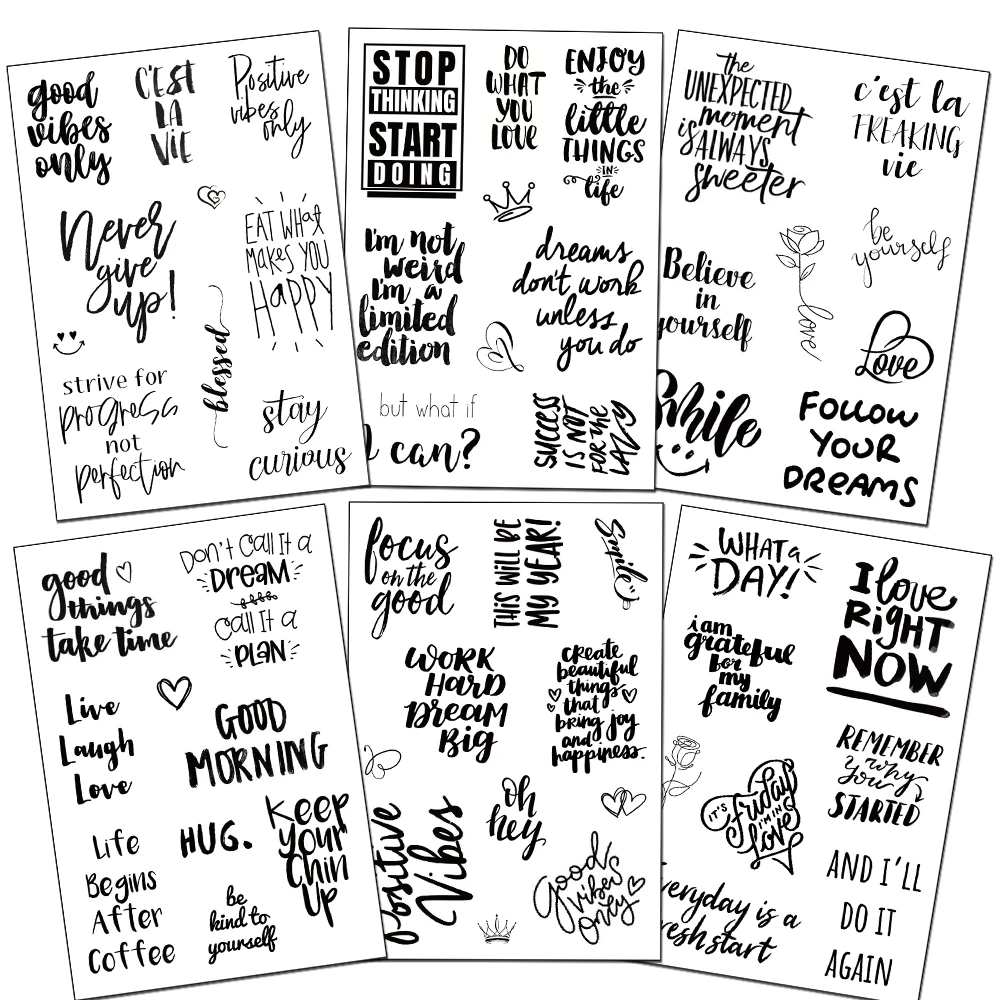 good
vibes
only
C'EST
LA
VIE
Positive
vibes
only
Never
give
up!
EAT WHAT
MAKES YOU
HAPPY
blessed
strive for
progress
not
perfection
stay
curious
STOP
THINKING
START
DOING
DO
WHAT
YOU
LOVE
ENJOY
the
little
THINGS
IN
life
I'm not
weird
I'm a
limited
edition
dreams
don't work
unless
you do
but what if
I can?
SUCCESS
IS NOT
FOR THE
LAZY
the
UNEXPECTED
moment
is ALWAYS
sweeter
c'est la
FREAKING
vie
Believe
in
yourself
love
be
yourself
Love
Smile
FOLLOW
YOUR
DREAMS
good
things
take time
DON'T CALL IT A
DREAM
CALL IT A
PLAN
Live
Laugh
Love
GOOD
MORNING
Life
Begins
After
Coffee
HUG.
be
kind to
yourself
Keep
your
chin
up
focus
on the
good
THIS WILL BE
MY YEAR!
Smile
WORK
HARD
DREAM
Big
create
beautiful
things
that
bring joy
and
happiness.
Positive
Vibes
oh
hey
Good
vibes
only
WHAT a
DAY!
I love
RiGHT
NOW
i am
grateful
for
my
family
IT'S
Friday
I'M IN
Love
REMEMBER
why
you
STARTED
everyday is a
fresh start
AND I'LL
DO IT
AGAIN